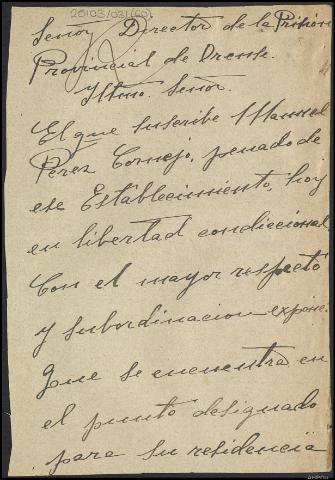 20103/031(60)
Señor Director de la Prision
Provincial de Orense.
Iltmo. Señor.
El que suscribe Manuel
Pérez Cornejo, penado de
ese Establecimiento, hoy
en libertad condiccional
Con el mayor respecto
y subordinacion expone:
Que se encuentra en
el punto designado
para su residencia